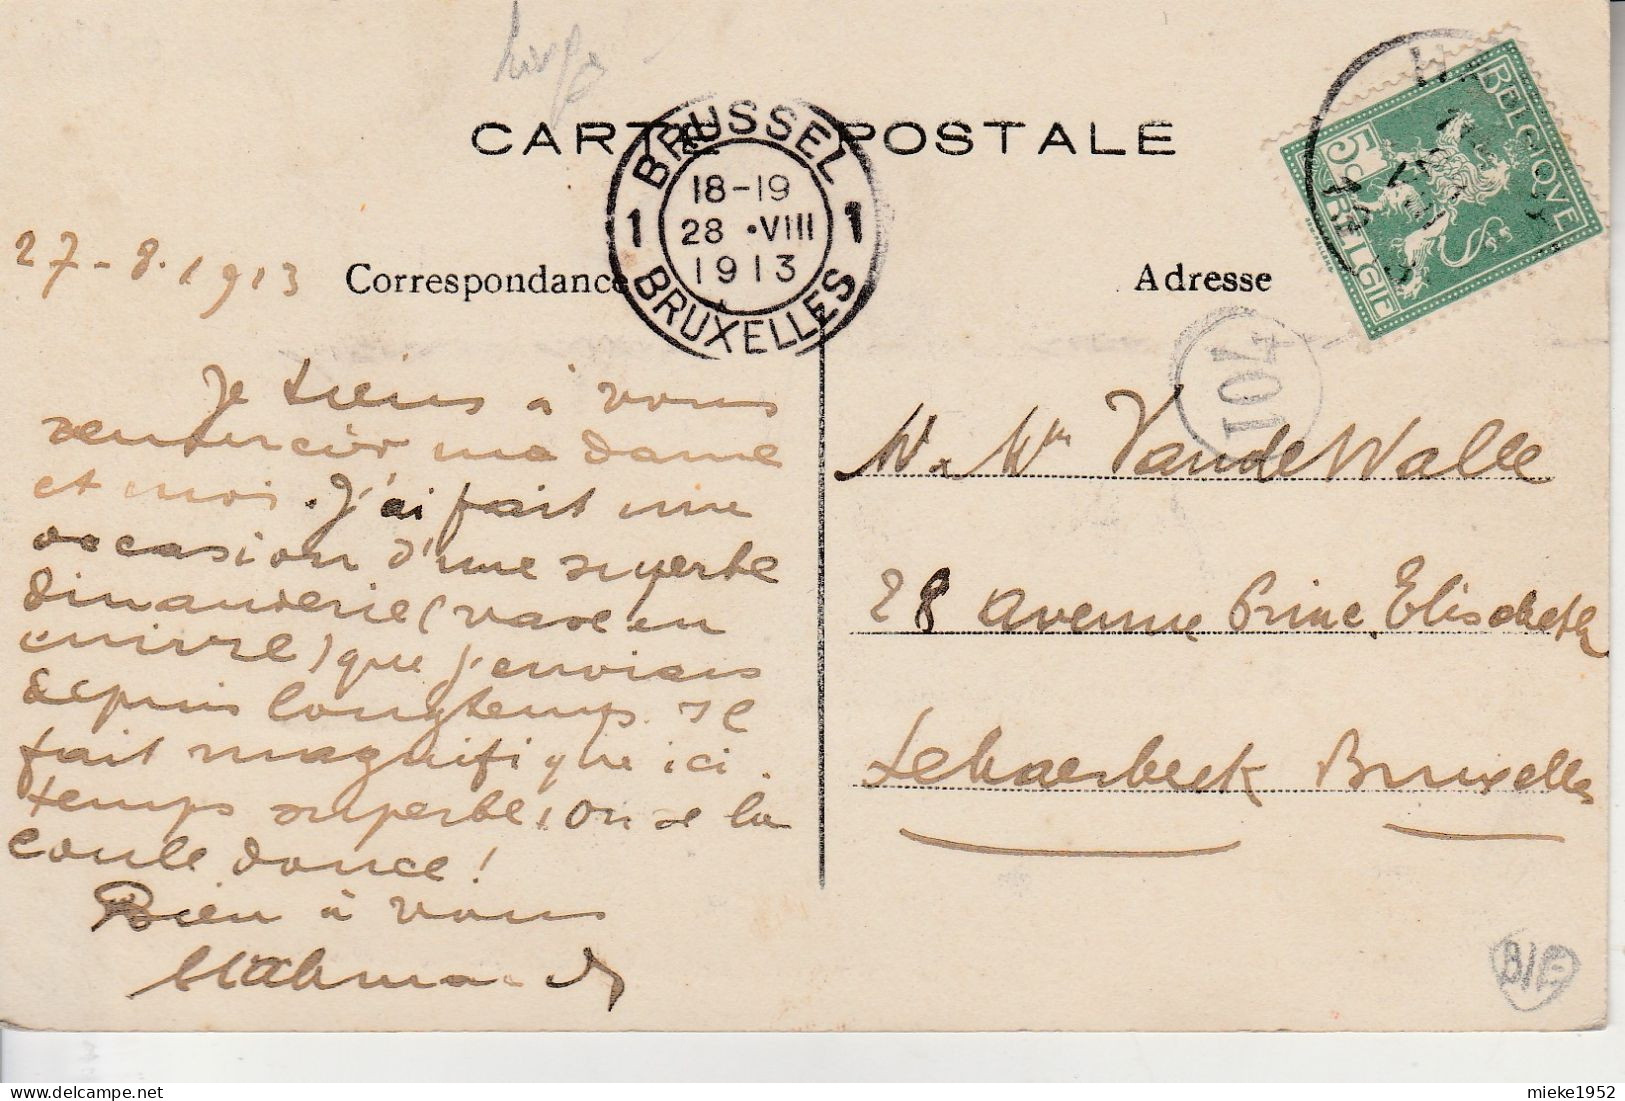 CARTE POSTALE
BRUSSEL
1 18-19 1
28 •VIII
1913
BRUXELLES
BELGIQUE
5c
BELGIË
27-8.1913
Correspondance
Adresse
104
Je tiens à vous
remercier madame
et moi. J'ai fait une
occasion d'une superbe
dinanderie (vase en
cuivre) que j'enviais
depuis longtemps. Il
fait magnifique ici.
temps superbe, on se la
coule douce!
Bien à vous
Mr & Mme VandeWalle
28 avenue Princ. Elisabeth
Schaerbeek Bruxelles
B/E
mieke1952